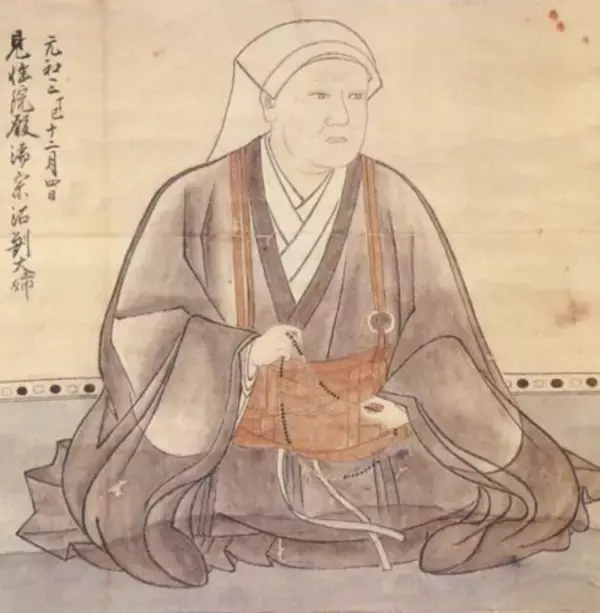 元和三丁巳十二月四日
見性院殿潙宗紹劉大姉